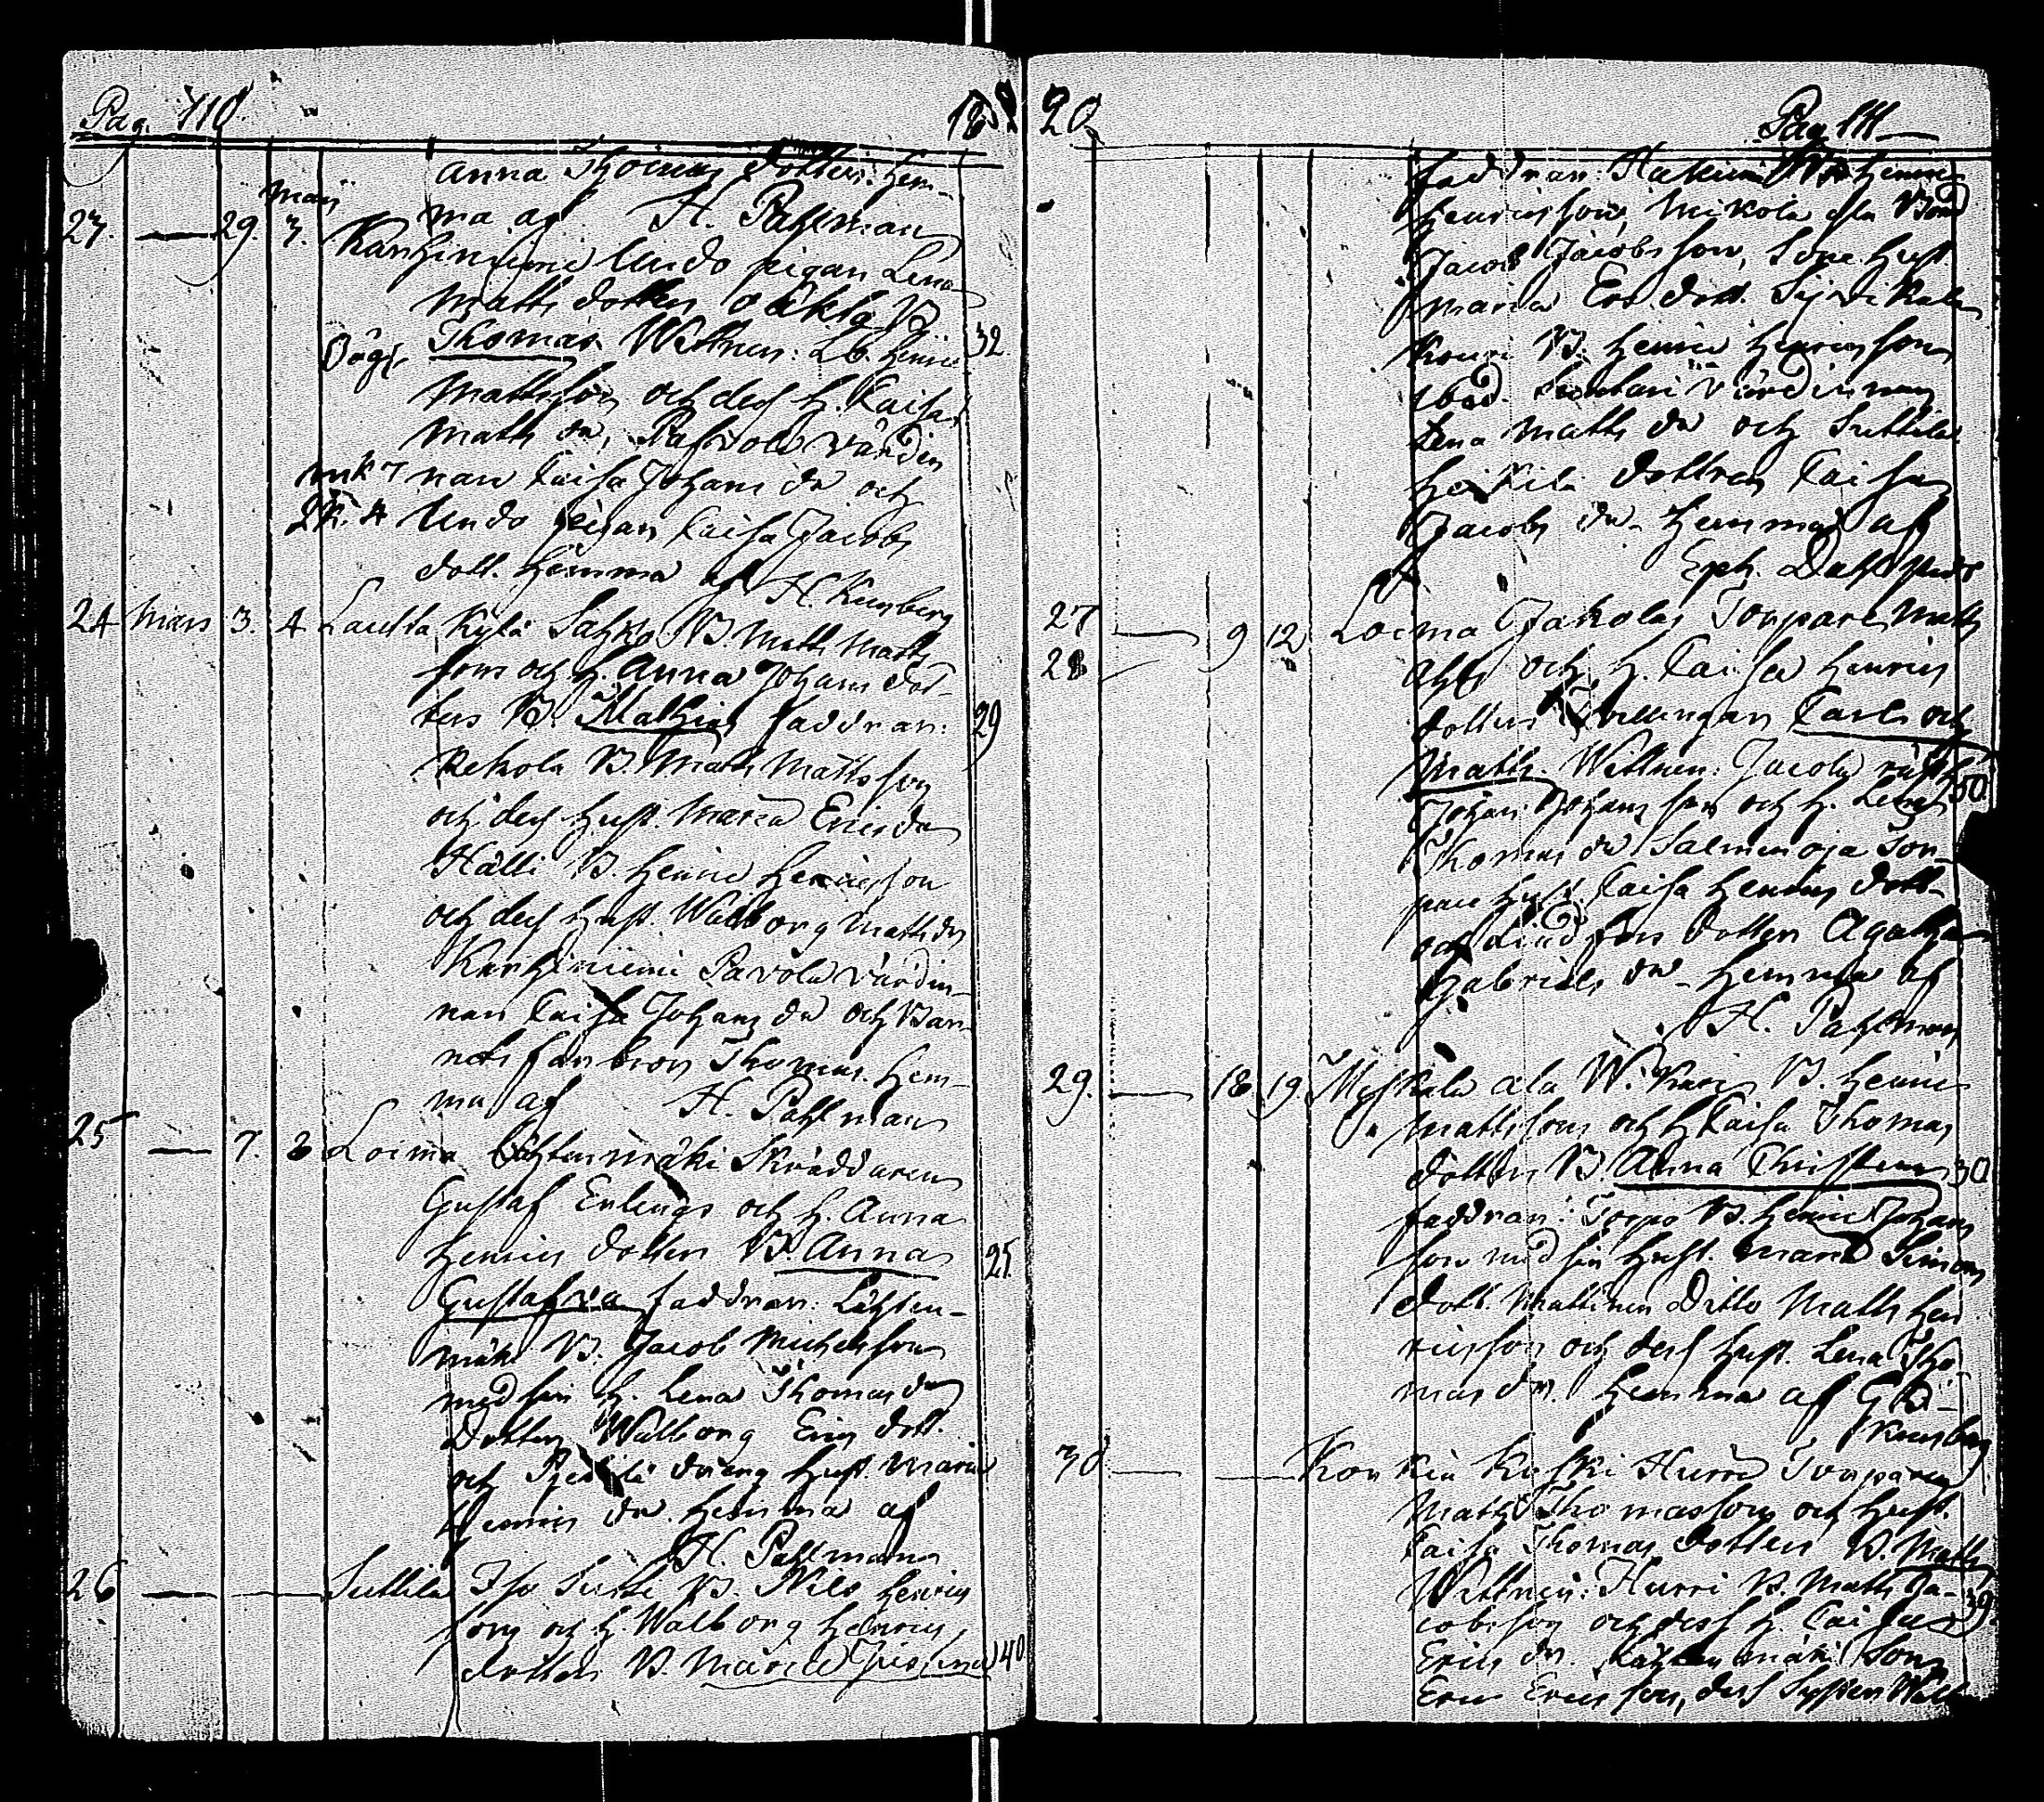 Pag. 110. 18
Anna Thomas Dotter. Hem-
27. — 29. Maij 7. ma af H. Pahlman
Karhiniemi Undo pigan Lena
Matts dotters oäkta B.
Oägt. Thomas Wittnen: Lb. Henric 32.
Mattsson och dess h. Caisa
Matts dr, Pafvola värdin
nan Caisa Johans dr och
Undo pigan Caisa Jacobs
dott. Hemma af H. Kumberg
24 Mars 3. 4 Lautta Kylä Sahko B. Matts Matts
sons och h. Anna Johans dot-
ters B. Mathias faddrar: 29
Kekola B. Matts Mattsson
och dess hust. Maria Erics dr
Hälli B. Henric Henricsson
och dess hust. Walborg Matts dr
Karhiniemi Pavola värdin-
nan Caisa Johans dr och Bar-
nets farbror Thomas. Hem-
ma af H. Pahlman
25 — 7. 8 Loima Lähtenmäki Skräddaren
Gustaf Erlengs och h. Anna
Henrics dotters B. Anna 25.
Gustafva faddrar: Lähten-
mäki B. Jacob Michelsson
med sin h. Lena Thomas dr
Dotter Walborg Erics dott.
och dreng hust. Maria
Henrics dr. Hemma af
H. Pahlman
26 — — Suttila Iso Sutti B. Nils Henrics
sons och h. Walborg Henrics
dotters B. Maria Justina 40
20 Pag. 111
faddrar: Henric
Henricsson, Mikola ala Bond
Jacob Jacobsson, Sone hust.
Maria Ers dott.
B. Henric Henricsson
ibid. värdinnan
Lena Matts dr och Suttila
Heikila dottren Caisa
Jacobs dr. Hemma af
Eph. Dahlstedt
27 28 — 9 12 Loima Jakolas Torpare Matts
och h. Caisa Henrics
dotters Tvillingar Carl och
Matts. Wittnen: Jacola 30.
Johan Johansson och h. Lena
Thomas dr Salmenoja Tor-
pare hust. Caisa Henrics dott.
och Lindfors dotter Agatha
Gabriels dr. Hemma af
H. Pahlman
29. — 18 19. Myskälä ala B. Henric
Mattssons och h. Caisa Thomas
dotters B. Anna Christina 30
faddrar: Torpo B. Henric Johans
son med sin hust. Maria Simons
dott. Mattinen Ditto Matts Hen
ricsson och dess hust. Lena Tho
mas dr. Hemma af
Kumberg
30 — — Kon kia Koski Hurri Torparen
Matts Thomassons och hust.
Caisa Thomas dotters B. Matts
Wittnen: Hurri B. Matts Ja- 39.
cobsson och dess h. Caisa
Erics dr. Lähtenmäki Son
Eric Ericsson, dess Syster Walb